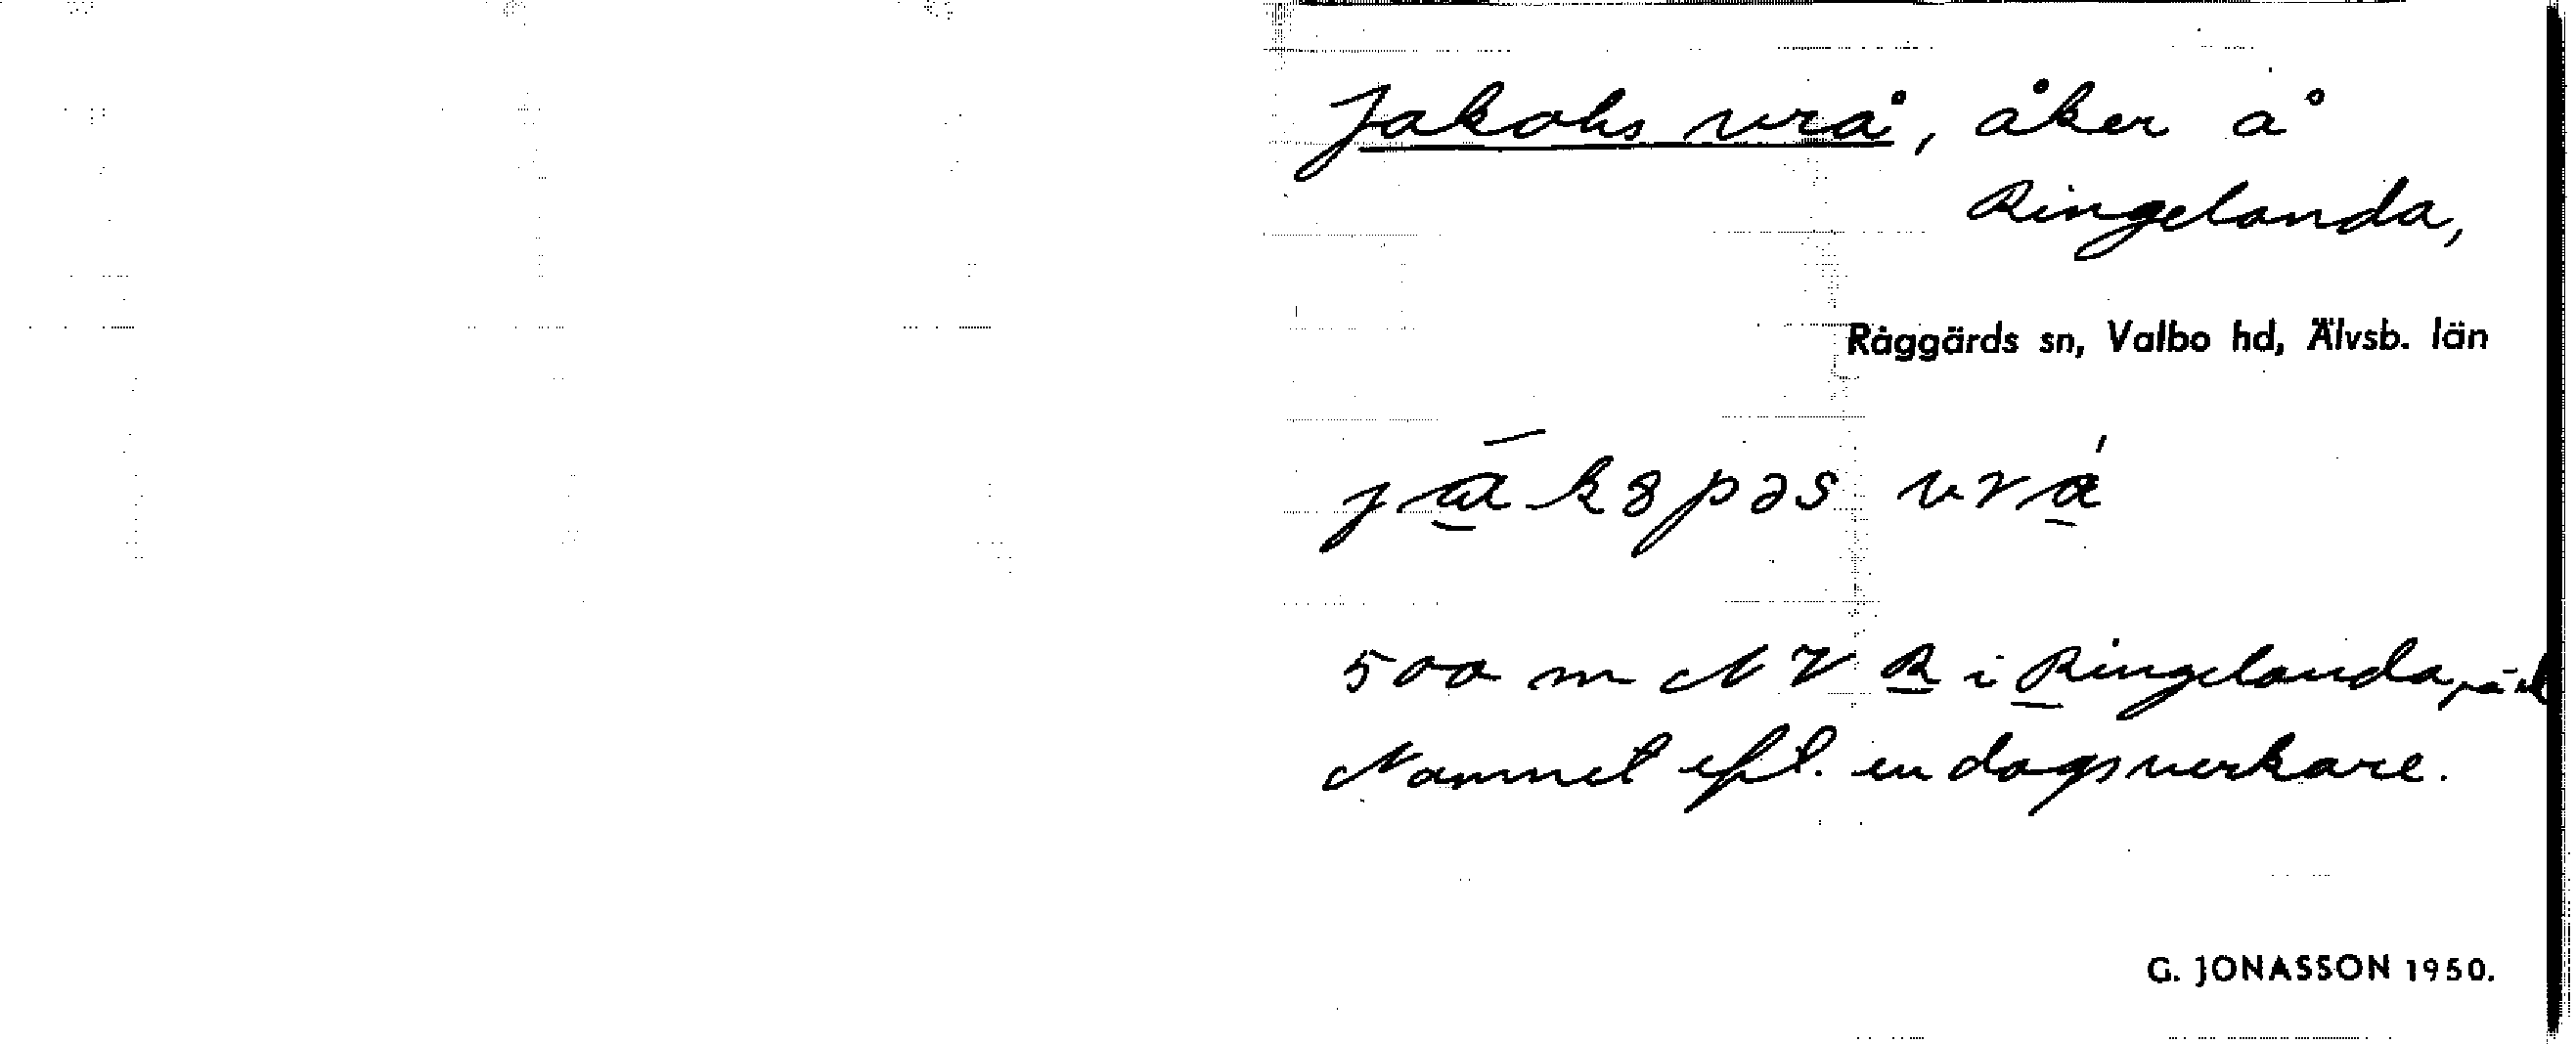 Jakobs vrå, åker å
Ringelanda,
Råggärds sn, Valbo hd, Älvsb. län
500 m NV R i Ringelanda, på
Namnet eft. en dagsverkare.
G. JONASSON 1950.